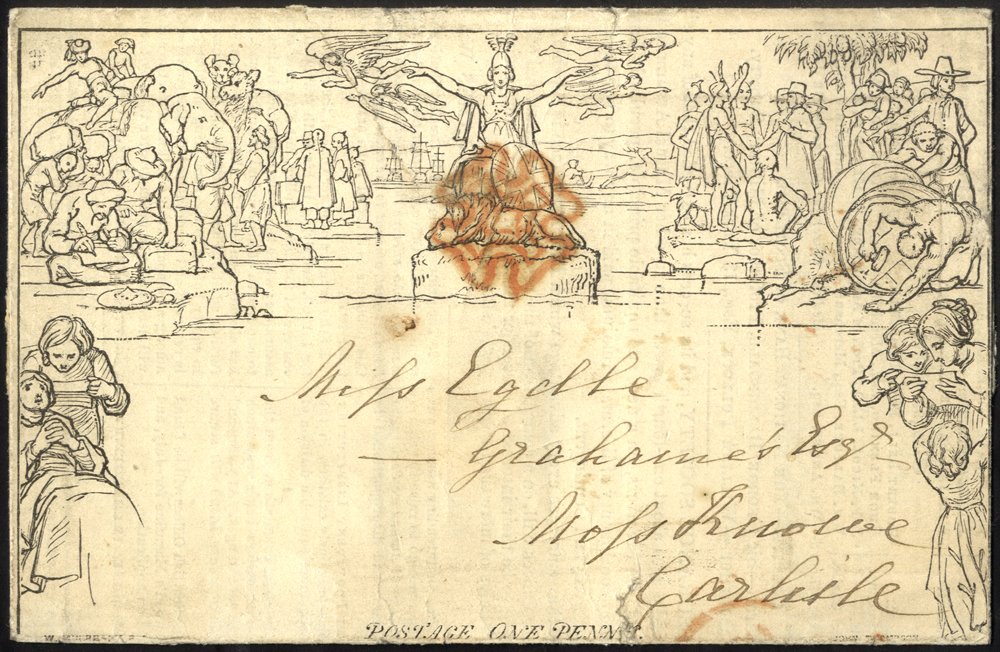 Miss Egdle
— Grahame's Esqr
Moss Knowe
Carlisle
POSTAGE ONE PENNY.
JOHN THOMPSON